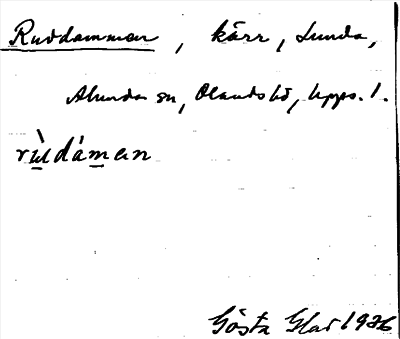 Ruddammen, kärr, Lunda,
Alunda sn, Olands hd, Upps. l.
rùdámen
Gösta Glad 1926